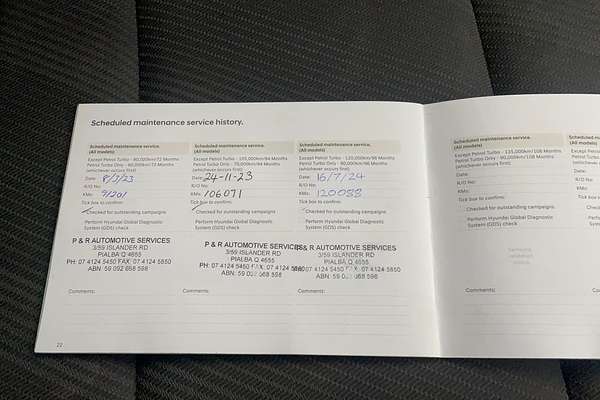 Scheduled maintenance service history.
Scheduled maintenance service.
(All models)
Except Petrol Turbo - 90,000km/72 Months
Petrol Turbo Only - 60,000km/72 Months
(whichever occurs first)
Date: 8/3/23
R/O No:
KMs:
Tick box to confirm:
Checked for outstanding campaigns
Perform Hyundai Global Diagnostic
System (GDS) check
P & R AUTOMOTIVE SERVICES
3/59 ISLANDER RD
PIALBA Q 4655
PH: 07 4124 5450 FAX: 07 4124 5850
ABN: 59 092 658 598
Comments:
Scheduled maintenance service.
(All models)
Except Petrol Turbo - 105,000km/84 Months
Petrol Turbo Only - 70,000km/84 Months
(whichever occurs first)
Date: 24-11-23
R/O No:
KMs: 106071
Tick box to confirm:
Checked for outstanding campaigns
Perform Hyundai Global Diagnostic
System (GDS) check
P & R AUTOMOTIVE SERVICES
3/59 ISLANDER RD
PIALBA Q 4655
PH: 07 4124 5450 FAX: 07 4124
ABN: 59 658 598
Comments:
Scheduled maintenance service.
(All models)
Except Petrol Turbo - 120,000km/96 Months
Petrol Turbo Only - 80,000km/96 Months
(whichever occurs first)
Date: 16/7/24
R/O No:
KMs: 120088
Tick box to confirm:
Checked for outstanding campaigns
Perform Hyundai Global Diagnostic
System (GDS) check
AUTOMOTIVE SERVICES
3/59 ISLANDER RD
PIALBA Q 4655
07 4124 5450 FAX: 07 4124 5850
ABN: 59 658 598
Comments:
22
Scheduled maintenance service.
(All models)
Except Petrol Turbo - 135,000km/108 Months
Petrol Turbo Only - 90,000km/108 Months
(whichever occurs first)
Date:
R/O No:
KMs:
Tick box to confirm:
Checked for outstanding campaigns
Perform Hyundai Global Diagnostic
System (GDS) check
Comments:
Scheduled
(All models)
Except Petrol
Petrol Turbo
(whichever
Date:
R/O No:
KMs:
Tick box to
Checked
Perform
System
Comments: